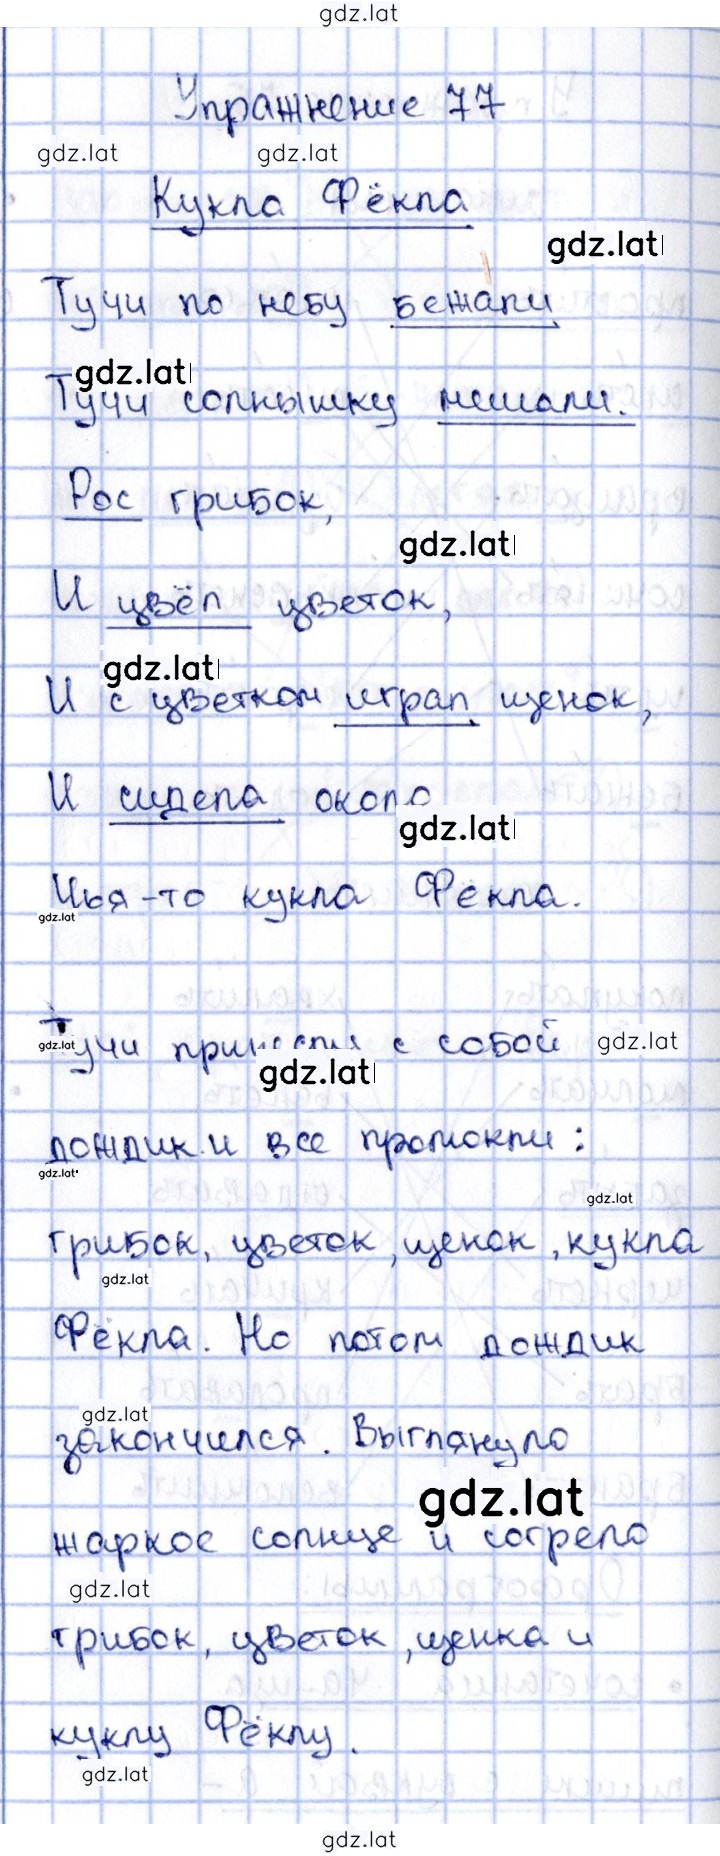 gdz.lat
Упражнение 77
gdz.lat gdz.lat
Кукла Фёкла
gdz.lat
Тучи по небу бежали
gdz.lat
Тучи солнышку мешали.
Рос грибок,
gdz.lat
И цвёл цветок,
gdz.lat
И с цветком играл щенок,
И сидела около
gdz.lat
Чья-то кукла Фёкла.
gdz.lat
Тучи принесли с собой
gdz.lat gdz.lat
gdz.lat
дождик и все промокли:
gdz.lat
gdz.lat
грибок, цветок, щенок, кукла
gdz.lat
Фёкла. Но потом дождик
gdz.lat
закончился. Выглянуло
gdz.lat
жаркое солнце и согрело
gdz.lat
грибок, цветок, щенка и
куклу Фёклу.
gdz.lat
gdz.lat